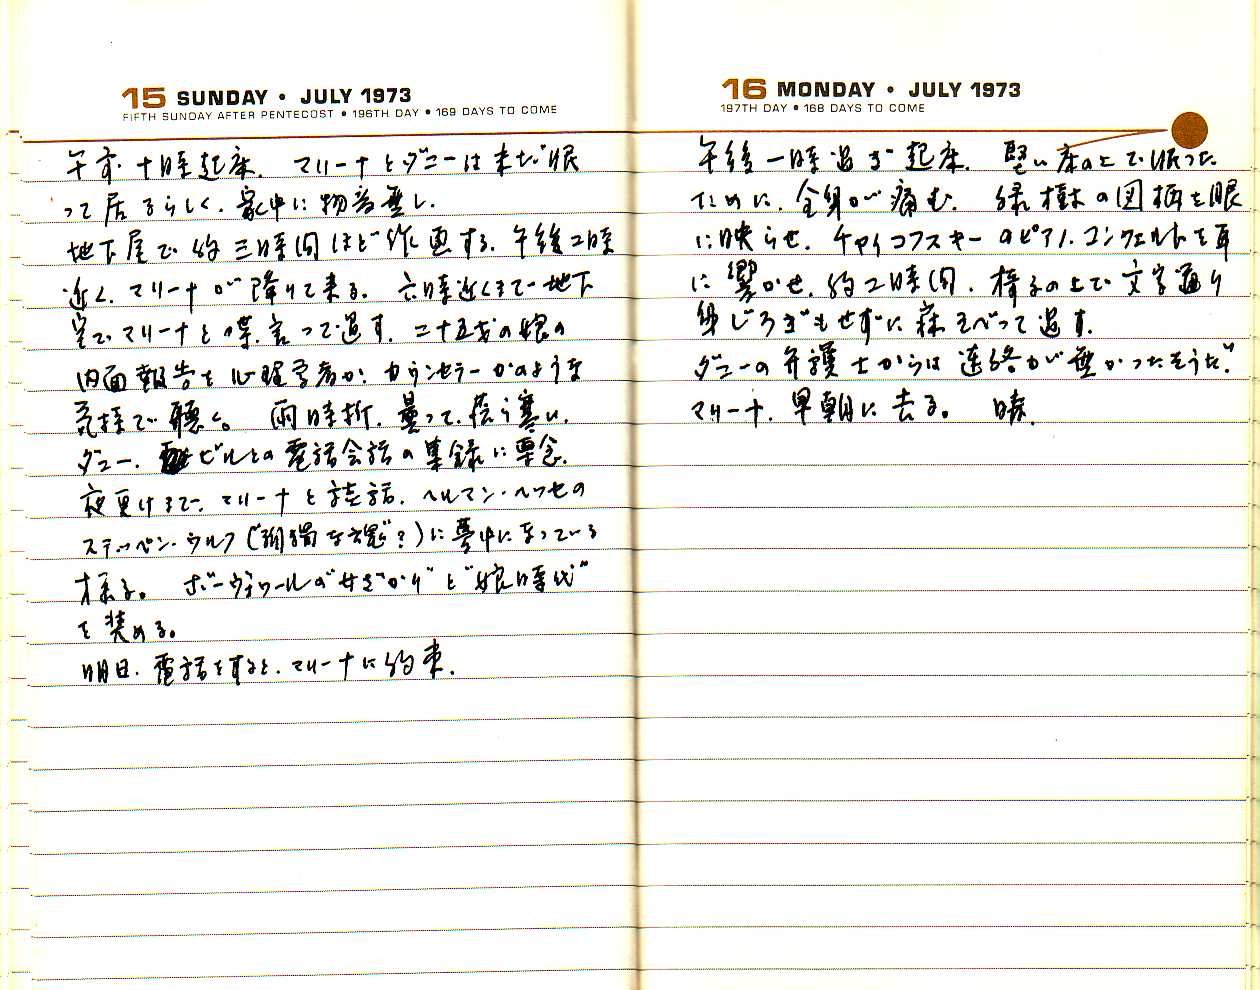 15 SUNDAY • JULY 1973
FIFTH SUNDAY AFTER PENTECOST • 196TH DAY • 169 DAYS TO COME
午前十時起床. マリーナとダニーは未だ眠
って居るらしく、家中に物音無し.
地下室で約三時間ほど作画する. 午後二時
近く、マリーナが降りて来る。 六時近くまで地下
室で、マリーナと喋言って過す. 二十五才の娘の
内面報告を心理学者か、カウンセラーかのような
気持で聴く。 雨時折、曇って、薄ら寒い.
ダニー、ビルとの電話会話の集録に専念.
夜更けまで、マリーナと談話. ヘルマン・ヘッセの
ステッペン・ウルフ(“孤独な魂”?)に夢中になっている
様子。 ボーヴォワールの“女ざかり”と“娘時代”
を奨める。
明日、電話をすると、マリーナに約束.
16 MONDAY • JULY 1973
197TH DAY • 168 DAYS TO COME
午後一時過ぎ起床. 堅い床の上で眠った
ために、全身が痛む. 緑樹の図柄を眼
に映らせ、チャイコフスキーのピアノ・コンツェルトを耳
に響かせ、約二時間、椅子の上で文字通り
身じろぎもせずに寝そべって過す.
ダニーの弁護士からは連絡が無かったそうだ.
マリーナ、早朝に去る。